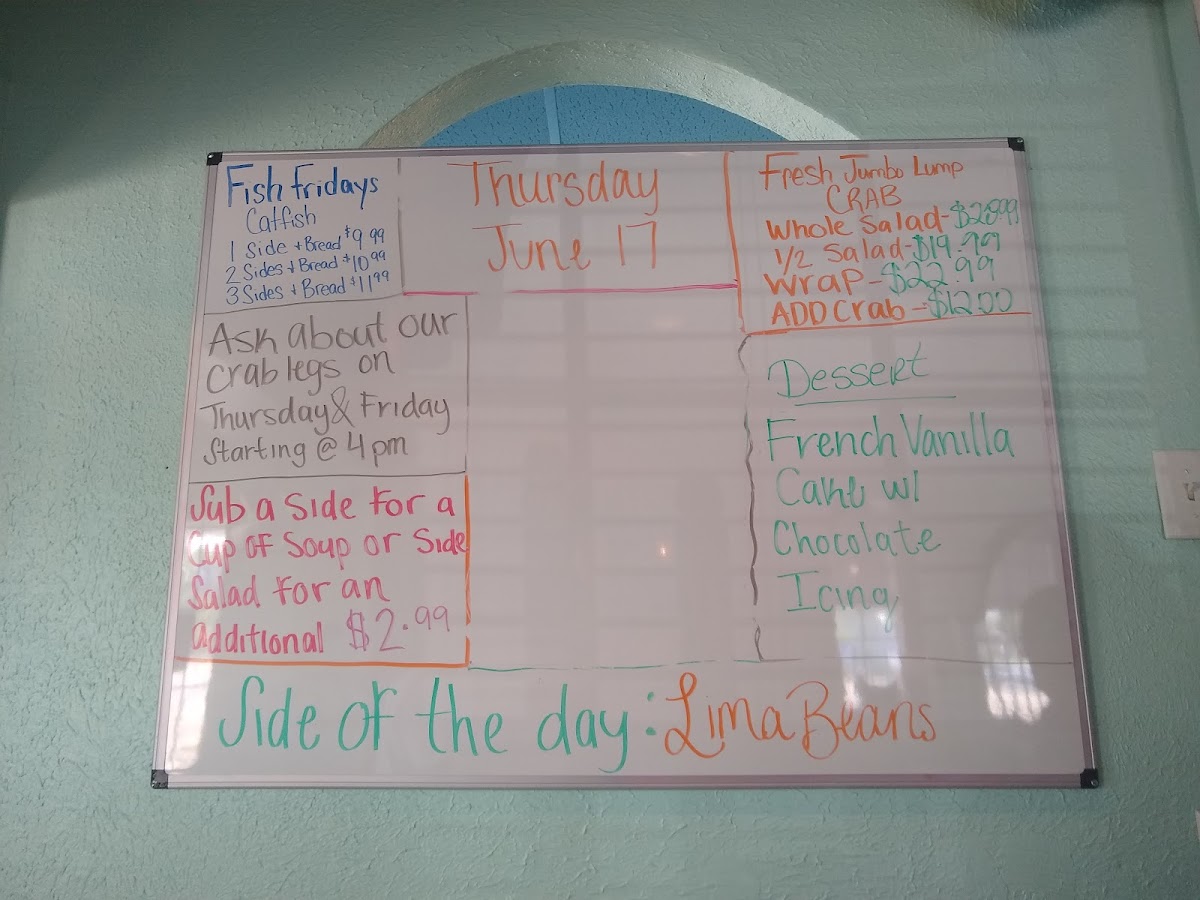 Fish Fridays
Catfish
1 Side + Bread $9.99
2 Sides + Bread $10.99
3 Sides + Bread $11.99
Ask about our
Crab legs on
Thursday & Friday
Starting @ 4pm
Sub a side for a
Cup of Soup or Side
Salad for an
additional $2.99
Thursday
June 17
Fresh Jumbo Lump
CRAB
Whole Salad-
1/2 Salad-$19.99
Wrap-$22.99
ADD Crab-$12.00
Dessert
French Vanilla
Cake w/
Chocolate
Icing
Side of the day: Lima Beans